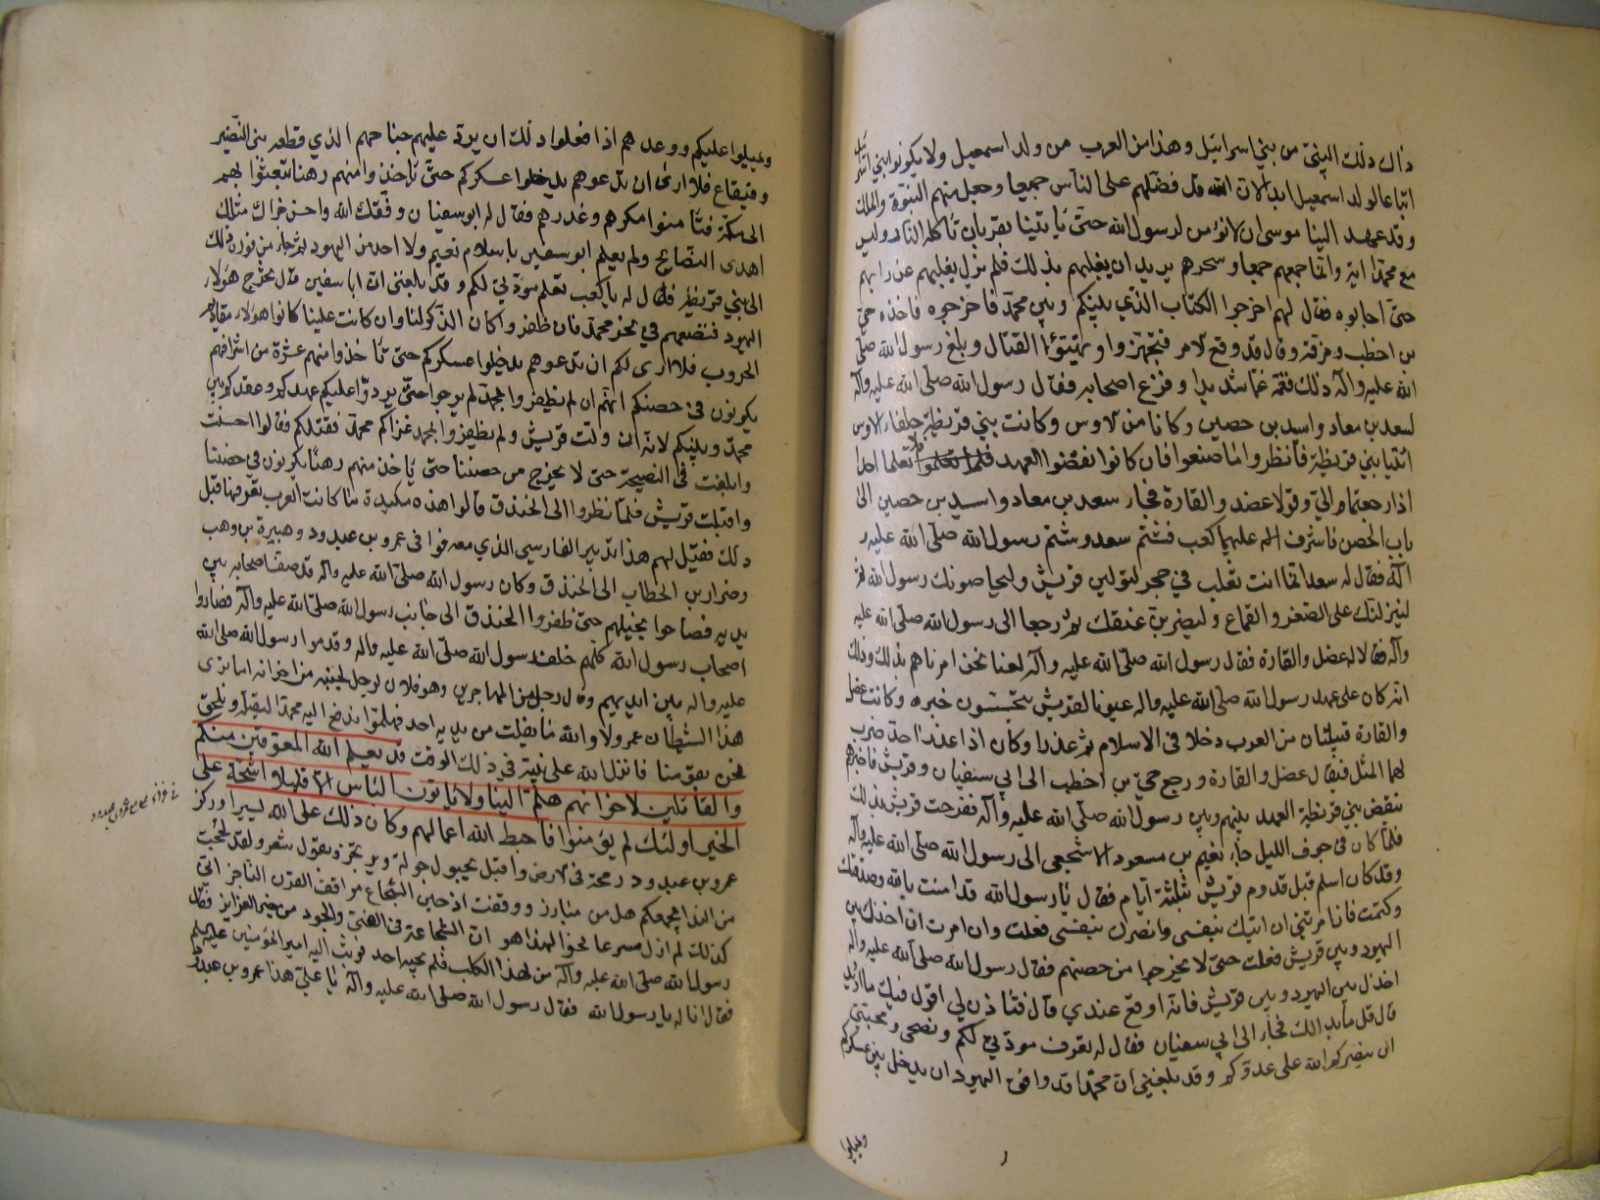 ذاك ذلك النبي من بني اسرائيل وهذا من العرب من ولد اسمعيل ولا يكونوا بني اسرائيل
اتباعا لولد اسمعيل ابدا لان الله قد فضلهم على الناس جميعا وجعل منهم النبوة والملك
وقد عهد الينا موسى ان لا نؤمن لرسول الله حتى ياتينا بقربان تاكله النار وليس
مع محمد اية وانما جمعهم جمعا وسحرهم يريد ان يغلبهم بذلك فلم يزل يغلبهم عن رايهم
حتى اجابوه فقال لهم اخرجوا الكتاب الذي بينكم وبين محمد فاخرجوه فاخذه حي
بن اخطب ومزقه وقال قد وقع الامر فتجهزوا وتهيئوا القتال وبلغ رسول الله صلى
الله عليه وآله ذلك فغمه غما شديدا وفزع اصحابه فقال رسول الله صلى الله عليه وآله
لسعد بن معاد واسيد بن حصين وكانا من الاوس وكانت بني قريظة حلفاء الاوس
ائتيا بني قريظة فأنظروا ما صنعوا فان كانوا نقضوا العهد فلا تعلما احدا
اذا رجعتما والي وقولا عضد والقارة فجاء سعد بن معاد واسيد بن حصين الى
باب الحصن فاشرف اله عليهما كعب فشتم سعد وشتم رسول الله صلى الله عليه و
آله فقال له سعد انما انت ثعلب في حجر لتولين قريش وليحاصرنك رسول الله
لينزلنك على الصغر والقماع وليضربن عنقك ثم رجعا الى رسول الله صلى الله عليه
وآله فقالا له عضل والقارة فقال رسول الله صلى الله عليه وآله لعنا نحن امرناهم بذلك وذلك
انه كان على عهد رسول الله صلى الله عليه واله عيونا لقريش يتجسسون خبره وكانت عضل
والقارة قبيلتان من العرب دخلا في الاسلام ثم غدرا وكان اذا غدر احد ضرب
لهما المثل فيقال عضل والقارة ورجع حيي بن اخطب الى ابي سفيان وقريش فاخبرهم
بنقض بني قريظة العهد بينهم وبين رسول الله صلى الله عليه وآله ففرحت قريش بذلك
فلما كان في جوف الليل جاء نعيم بن مسعود الاشجعي الى رسول الله صلى الله عليه وآله
وقد كان اسلم قبل قدوم قريش بثلثة ايام فقال يا رسول الله قد امنت بالله وصدقتك
وكتمت فان امرتني ان اتيك بنفسي وانصرك بنفسي فعلت وان امرت ان اخذل بين
اليهود وبين قريش فعلت حتى لا يخرجوا من حصنهم فقال رسول الله صلى الله عليه وآله
اخذل بين اليهود وبين قريش فانه اوقع عندي قال فتأذن لي اقول فيك ما اريد
قال قل ما بدا لك فجاء الى ابي سفيان فقال له تعرف مودتي لكم ونصحي ومحبتي
ان ينصركم الله على عدوكم وقد بلغني ان محمدا قد وافق اليهود ان يدخل بين عسكركم
ويميلوا
ويميلوا عليكم ووعدهم اذا فعلوا ذلك ان يرد عليهم جناحهم الذي قطعه بني النضير
وقينقاع فلا ارى ان تدعوهم يدخلوا عسكركم حتى تاخذوا منهم رهنا تبعثوا بهم
الى مكة فتأمنوا مكرهم وغدرهم فقال له ابو سفيان وفقك الله واحسن جزاك مثلك
اهدى النصائح ولم يعلم ابو سفين باسلام نعيم ولا احد من اليهود ثم جاء من فوره ذلك
الى بني قريظة فقال له يا كعب تعلم مودتي لكم وقد بلغني ان ابا سفين قال نخرج هؤلاء
اليهود فنضعهم في نحر محمد فان ظفروا كان الذكر لنا وان كانت علينا كانوا هؤلاء مقاديم
الحروب فلا ارى لكم ان تدعوهم يدخلوا عسكركم حتى تاخذوا منهم عشرة من اشرافهم
يكونون في حصنكم انهم ان لم يظفروا بمحمد لم يبرحوا حتى يردوا عليكم عهدكم وعقدكم بين
محمد وبينكم لانه ان ولت قريش ولم يظفروا بمحمد غزاكم محمد فقتلكم فقالوا احسنت
وابلغت في النصيحة حتى لا نخرج من حصننا حتى ناخذ منهم رهنا يكونون في حصننا
واقبلت قريش فلما نظروا الى الخندق قالوا هذه مكيدة ما كانت العرب تعرفها قبل
ذلك فقيل لهم هذا تدبير الفارسي الذي معه فوافى عمرو بن عبد ود وهبيرة بن وهب
وضرار بن الخطاب الى الخندق وكان رسول الله صلى الله عليه وآله قد صف اصحابه بين
يديه فصاحوا بخيلهم حتى ظفروا الخندق الى جانب رسول الله صلى الله عليه وآله فصاروا
اصحاب رسول الله كلهم خلف رسول الله صلى الله عليه واله وقدموا رسول الله صلى الله
عليه واله بين ايديهم وقال رجل من المهاجرين وهو فلان لرجل بجنبه من اخوانه اما ترى
هذا الشيطان عمرو لا والله ما يفلت من يديه احد فهلموا ندفع اليه محمدا ليقتله ونلحق
نحن بقومنا فانزل الله على نبيه في ذلك الوقت قد يعلم الله المعوقين منكم
والقائلين لاخوانهم هلم الينا ولا ياتون الباس الا قليلا واشحة على
الخير اولئك لم يؤمنوا فاحبط الله اعمالهم وكان ذلك على الله يسيرا وركز
عمرو بن عبد ود رمحه في الارض واقبل يجول جولة ويرتجز ويقول شعر ولقد بححت
من الندا بجمعكم هل من مبارز ووقفت اذ جبن الشجاع مواقف القرن الناجز اني
كذلك لم ازل مسرعا نحو الهذاهز ان الشجاعة في الفتى والجود من خير الغرايز فقال
رسول الله صلى الله عليه وآله من لهذا الكلب فلم يجبه احد فوثب اليه امير المؤمنين عليه السلم
فقال انا له يا رسول الله فقال رسول الله صلى الله عليه وآله يا علي هذا عمرو بن عبد ود